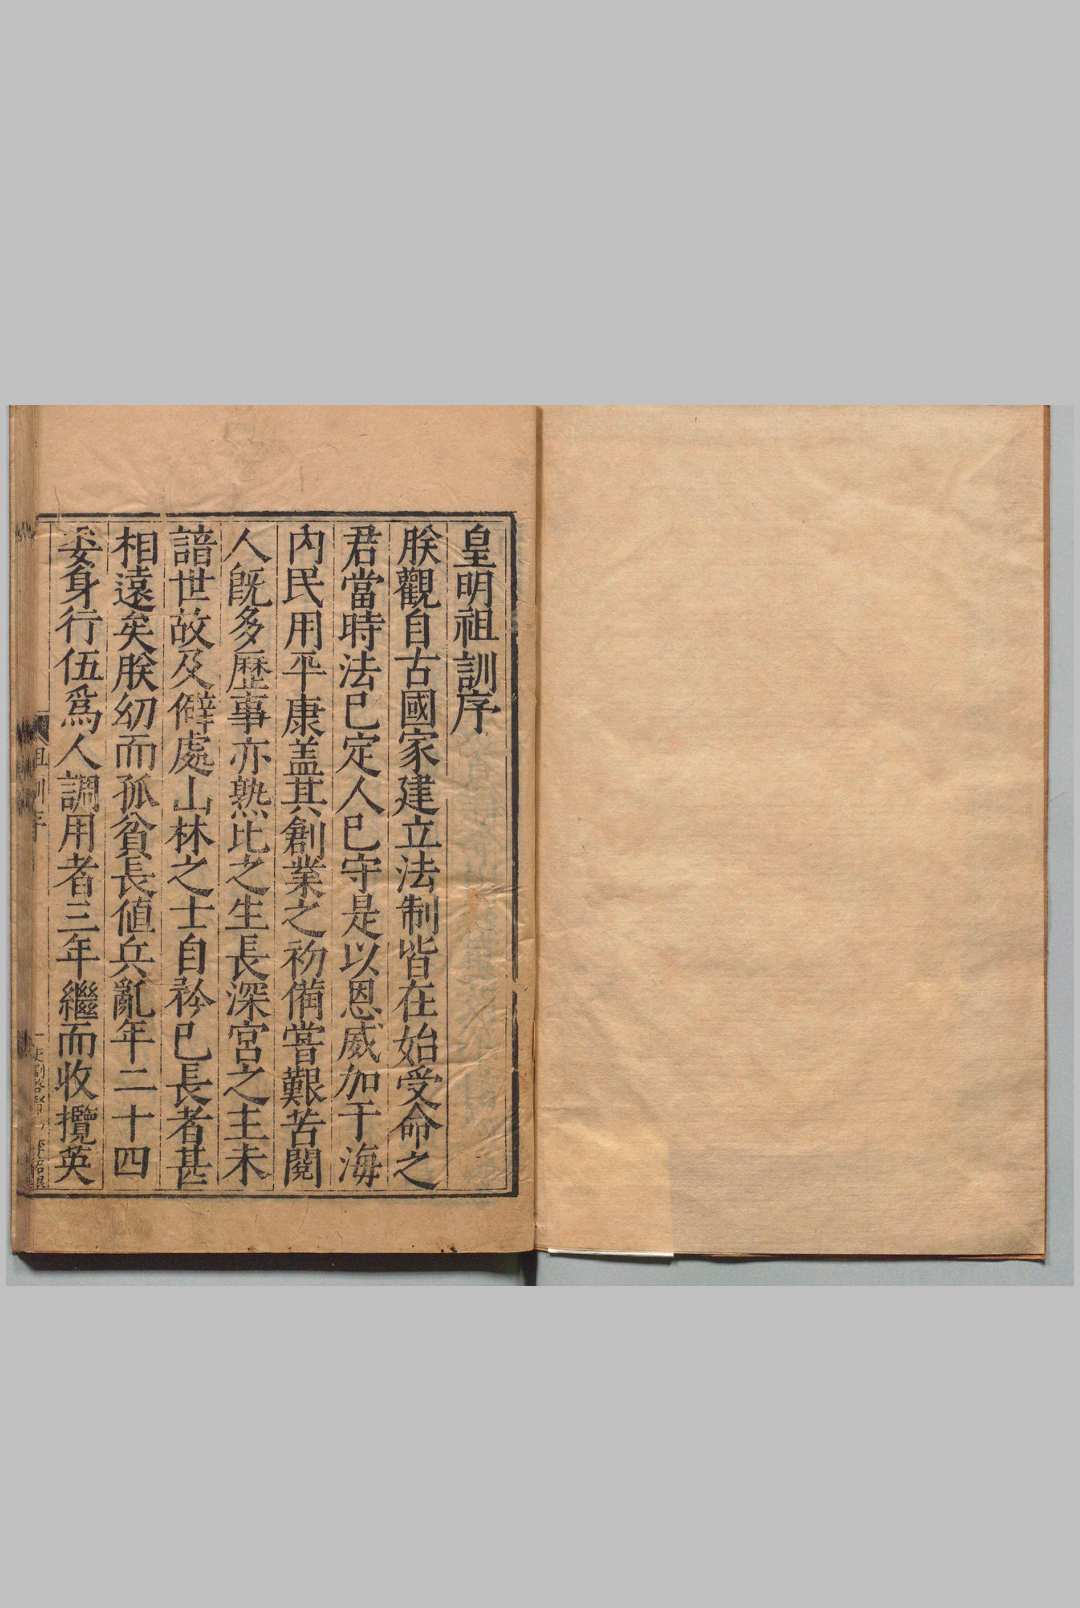 皇明祖訓序
朕觀自古國家建立法制皆在始受命之
君當時法已定人已守是以恩威加于海
內民用平康盖其創業之初備嘗艱苦閱
人旣多歷事亦熟比之生長深宮之主未
諳世故及僻處山林之士自矜已長者甚
相遠矣朕幼而孤貧長値兵亂年二十四
委身行伍爲人調用者三年繼而收攬英
祖訓序